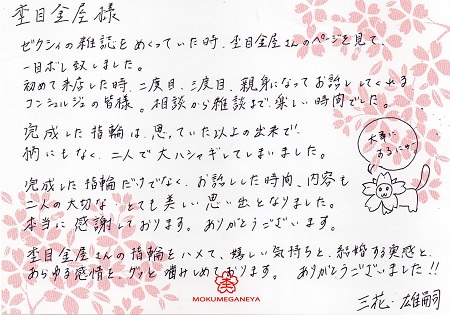 杢目金屋様
ゼクシィの雑誌をめくっていた時、杢目金屋さんのページを見て、
一目ボレ致しました。
初めて来店した時、二度目、三度目、親身になってお話ししてくれる
コンシェルジュの皆様。相談から雑談まで、楽しい時間でした。
完成した指輪は、思っていた以上の出来で!
柄にもなく、二人で大ハシャギしてしまいました。
大事に
するにゃ!
完成した指輪だけでなく、お話しした時間、内容も
二人の大切な、とても美しい思い出となりました。
本当に感謝しております。ありがとうございます。
杢目金屋さんの指輪をハメて、嬉しい気持ちと、結婚する実感と、
あらゆる感情を、グッと噛みしめております。ありがとうございました!!
MOKUMEGANEYA
三花・雄嗣